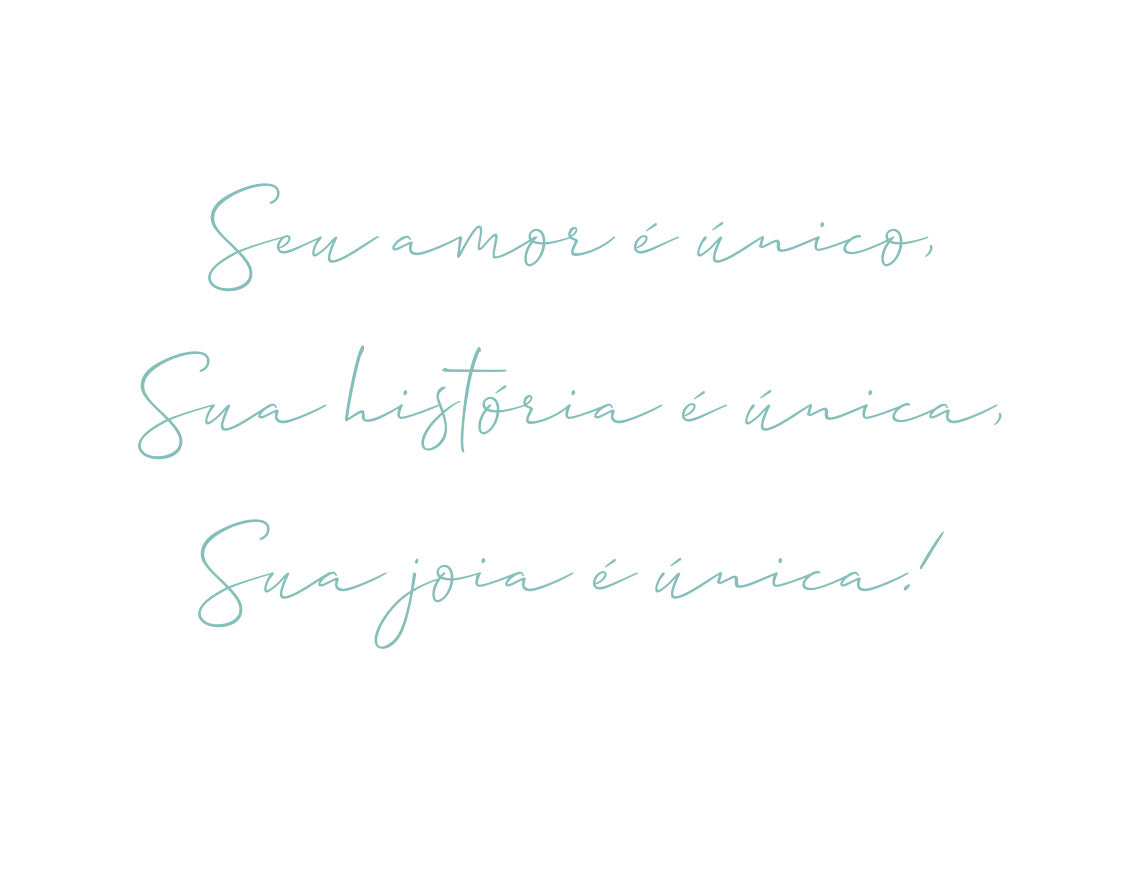 Seu amor é único,
Sua história é única,
Sua joia é única!